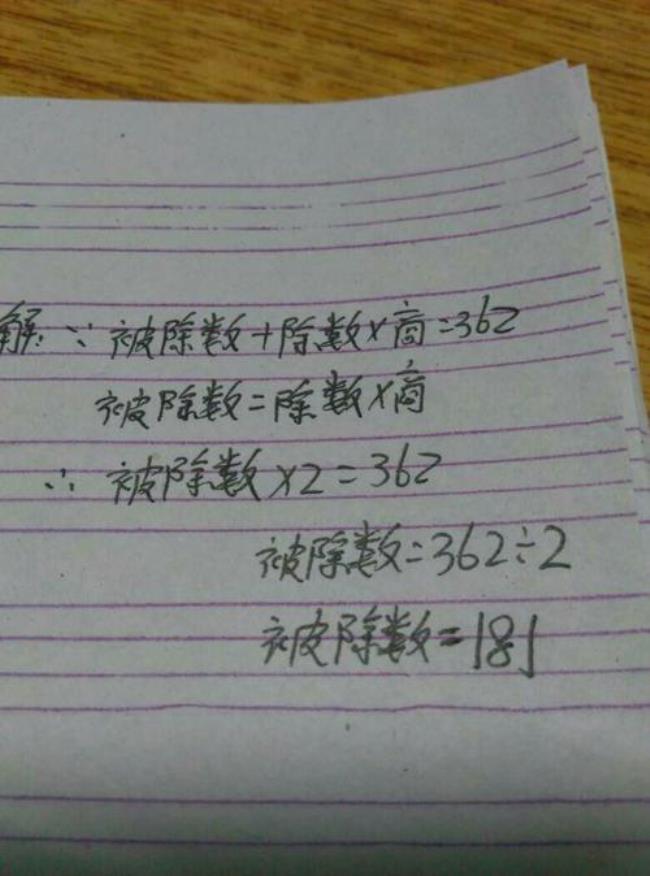 解:∵ 被除数+除数×商=362
被除数=除数×商
∴ 被除数×2=362
被除数=362÷2
被除数=181